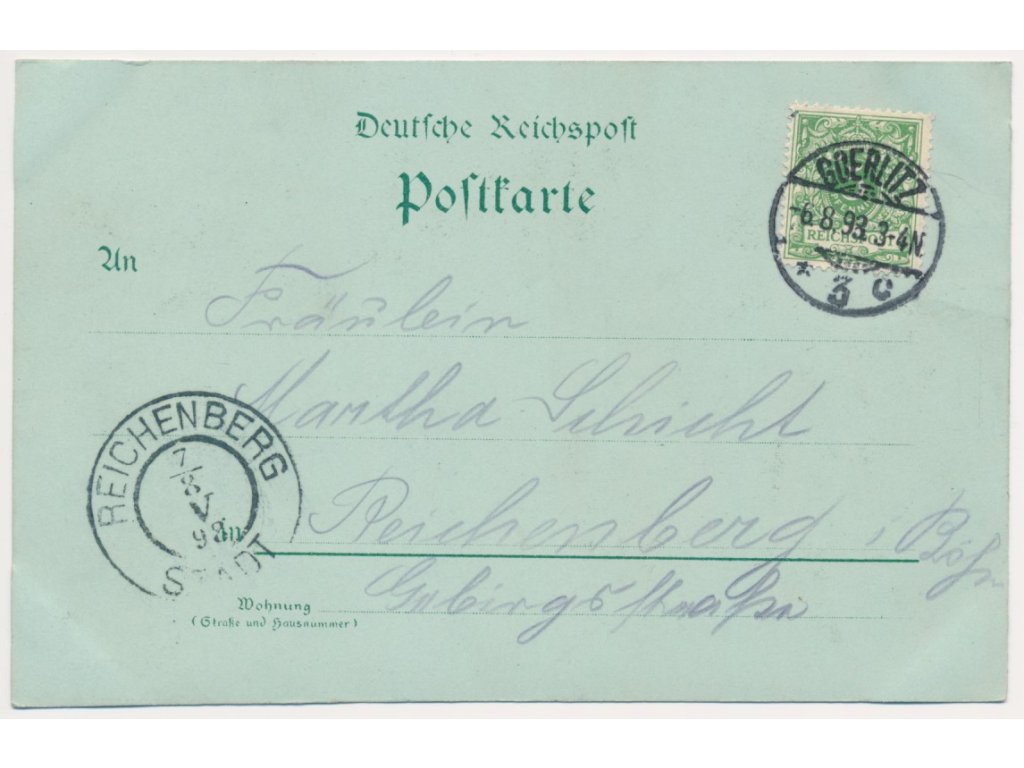 Deutsche Reichspost
Postkarte
GOERLITZ
-6.8.93.3-4N.
* 3 c
REICHSPOST
An
Fräulein
Martha Schicht
in Reichenberg, Böhm
Gebirgsstraße
Wohnung
(Straße und Hausnummer)
REICHENBERG
7/8
V
STADT